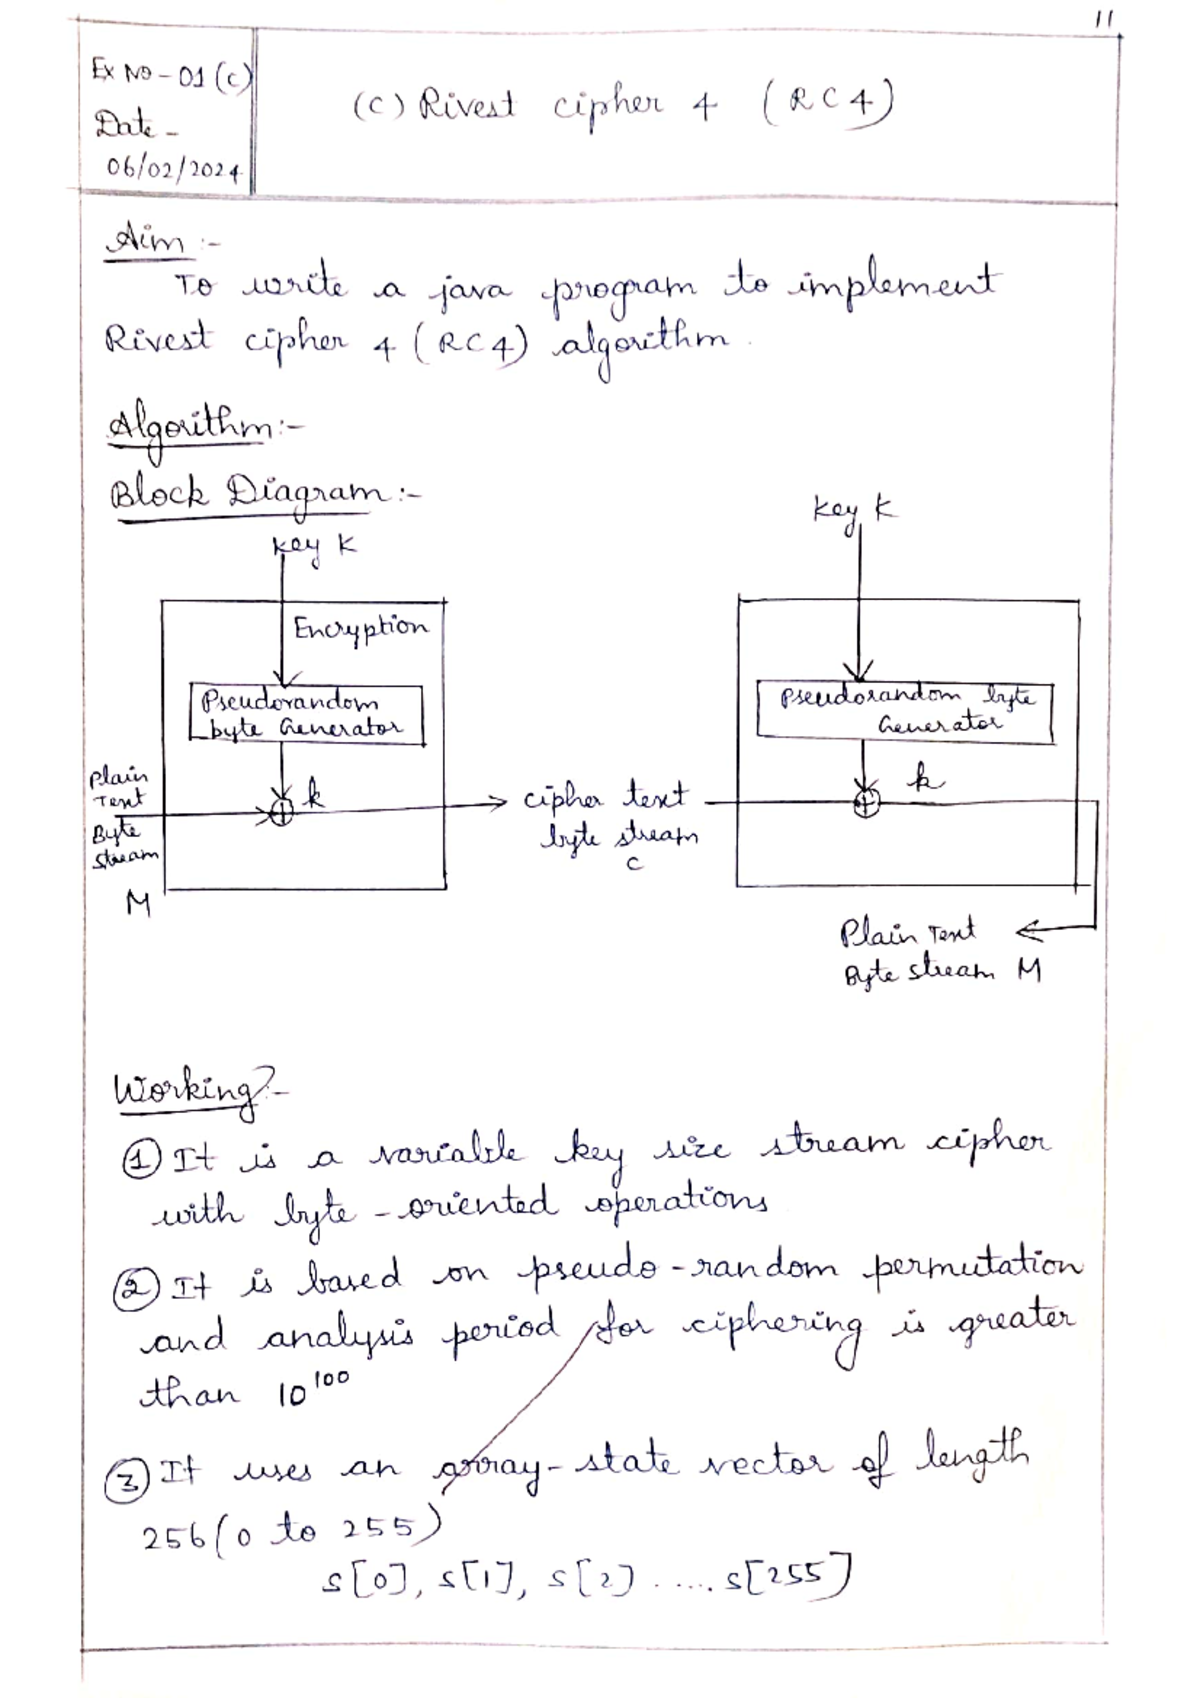 11
Ex No - 01 (c)
Date -
06/02/2024
(C) Rivest cipher 4 (RC4)
Aim :-
To write a java program to implement
Rivest cipher 4 (RC4) algorithm.
Algorithm:-
Block Diagram:-
Key K
Encryption
Pseudorandom
byte Generator
k
Plain
Text
Byte
stream
M
cipher text
byte stream
C
Key K
Pseudorandom byte
Generator
k
Plain Text
Byte stream M
Working:-
① It is a variable key size stream cipher
with byte-oriented operations
② It is based on pseudo-random permutation
and analysis period for ciphering is greater
than 10^100
③ It uses an array-state vector of length
256 (0 to 255)
S[0], S[1], S[2] ..... S[255]